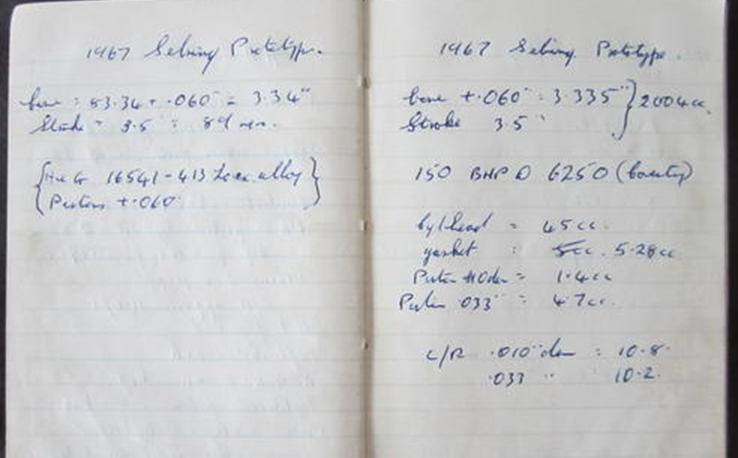 1967 Sebring Prototype.
bore = 83.34 + .060" = 3.34"
Stroke = 3.5" = 89 mm.
16541-413 alloy
Pistons +.060"
1967 Sebring Prototype.
bore +.060" = 3.335" } 2004cc.
Stroke 3.5"
150 BHP @ 6250
cyl head = 45cc.
gasket : 5cc. 5.28cc
Piston = 1.4cc
Piston .033" = 4.7cc.
C/R .010" down = 10.8.
.033 " 10.2.